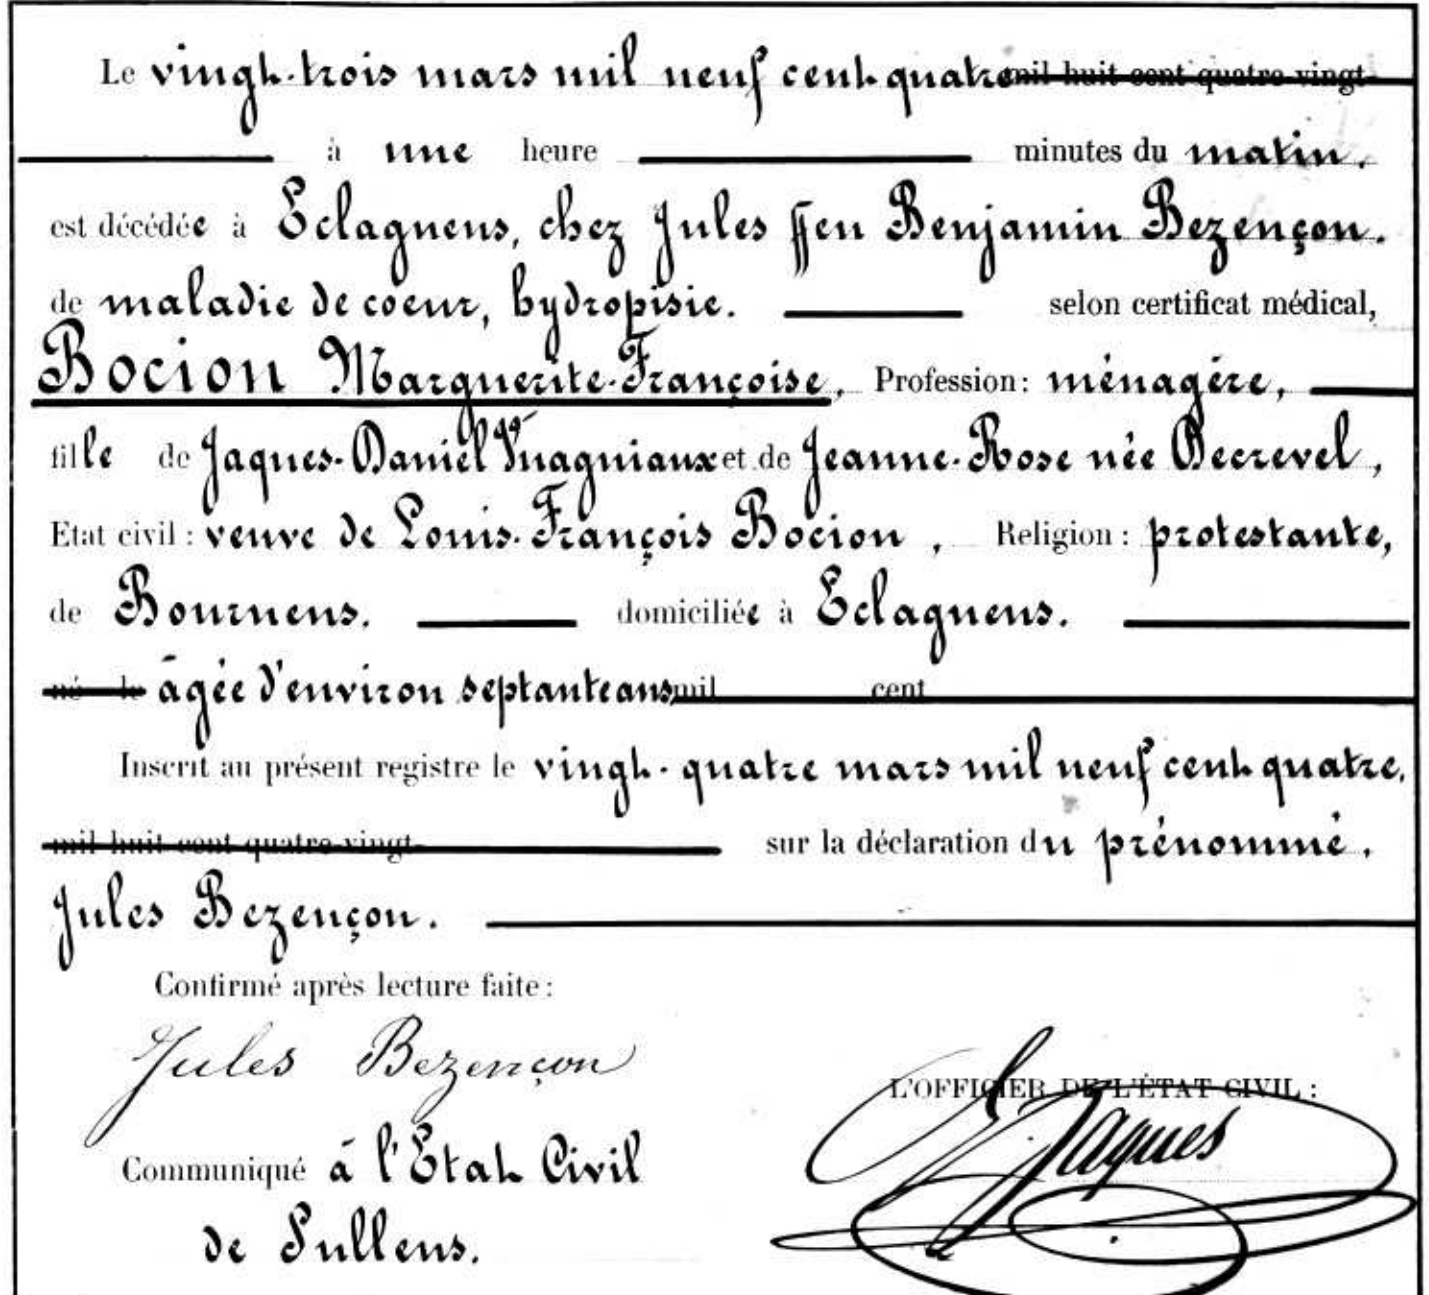 Le vingt-trois mars mil neuf cent quatre mil huit cent quatre-vingt-
à une heure minutes du matin,
est décédée à Eclagnens, chez Jules ffeu Benjamin Bezençon.
de maladie de coeur, hydropisie. selon certificat médical,
Bocion Marguerite-Françoise, Profession: ménagère,
fille de Jaques-Daniel Vuagniaux et de Jeanne-Rose née Decrevel,
Etat civil: veuve de Louis-François Bocion, Religion: protestante,
de Bournens. domiciliée à Eclagnens.
né le âgée d'environ septante ans mil cent
Inscrit au présent registre le vingt-quatre mars mil neuf cent quatre,
mil huit cent quatre-vingt- sur la déclaration du prénommé,
Jules Bezençon.
Confirmé après lecture faite:
Jules Bezençon
L'OFFICIER DE L'ÉTAT CIVIL:
Jaques
Communiqué à l'Etat Civil
de Sullens.